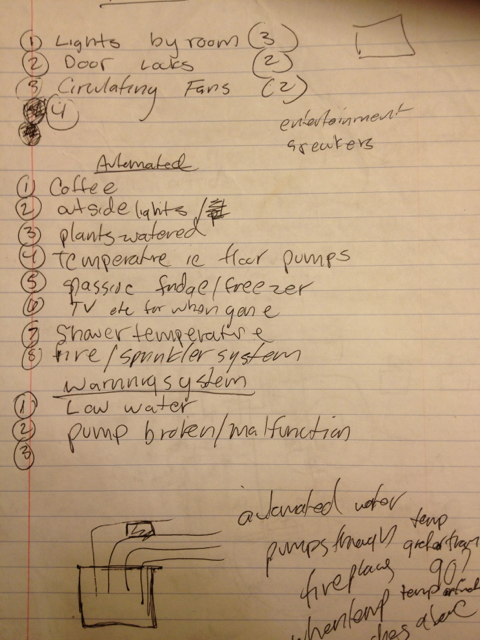 ① Lights by room (3)
② Door Locks (2)
③ Circulating Fans (2)
④
entertainment
speakers
Automated
① Coffee
② outside lights /
③ plants watered
④ temperature ie floor pumps
⑤ passive fridge/freezer
⑥ TV etc for when gone
⑦ Shower temperature
⑧ fire/sprinkler system
warning system
① Low water
② pump broken/malfunction
③
automated water
pumps through temp
fireplace greater than
90
when temp temp
has above